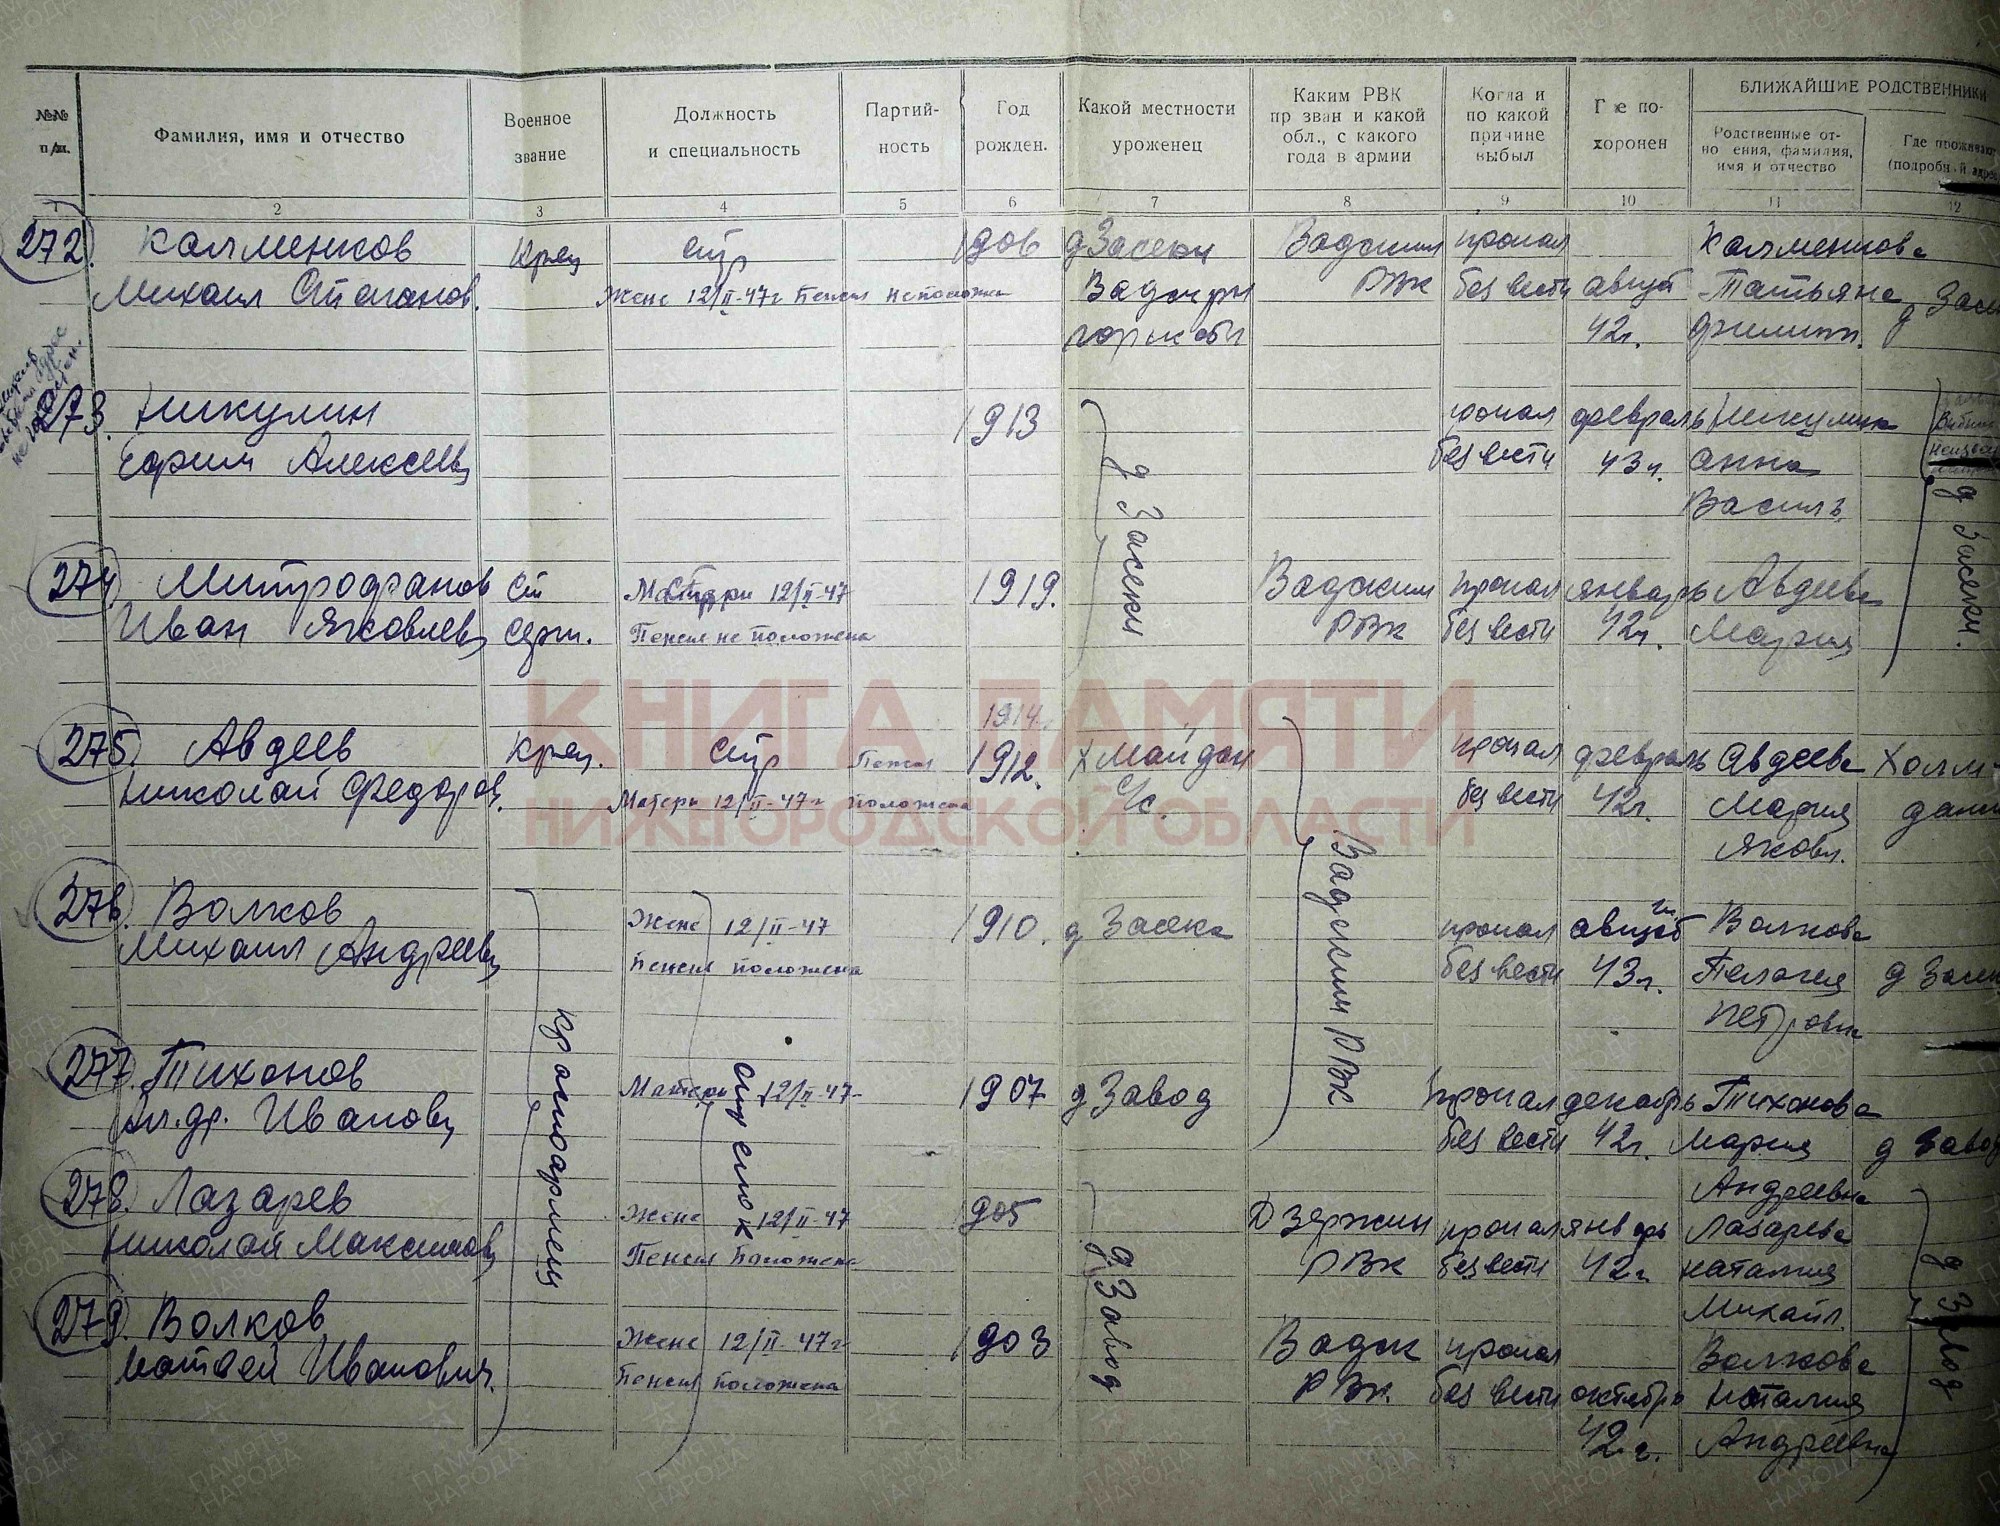 №№ п/п.
Фамилия, имя и отчество
Военное звание
Должность и специальность
Партий-ность
Год рожден.
Какой местности уроженец
Каким РВК призван и какой обл., с какого года в армии
Когда и по какой причине выбыл
Где по-хоронен
БЛИЖАЙШИЕ РОДСТВЕННИКИ
Родственные от-но ения, фамилия, имя и отчество
Где проживают (подробн й адрес
1 2 3 4 5 6 7 8 9 10 11 12
272. Калменков Крец стр 1906 д Засеки Вадским пропал Калменкова
Михаил Степанов. Жене 12/II-47г Пенсия не положена РВК без вести август Татьяна д
42г. Филипп.
273. Никулин 1913 пропал февраль Никулина
Ефрим Алексеев без вести 43г. Анна
Д Засеки Василь.
д Засеки.
274. Митрофанов Ст Матери 12/II-47 1919. Вадским пропал январь Авдеева
Иван Яковлев Серж. Пенсия не положена РВК без вести 42г. Мария
КНИГА ПАМЯТИ
НИЖЕГОРОДСКОЙ ОБЛАСТИ
1914
275. Авдеев Крец. стр Пенсия 1912. Х Майдан пропал февраль Авдеева
Николай Федоров. Матери 12/II-47г положена с/с. без вести 42г. Мария
Вадским РВК Яковл.
276. Волков Жене 12/II-47 1910. д Засека пропал август Волкова
Михаил Андреев Пенсия положена без вести 43г. Пелагия д
красноармеец Петровна
277. Тихонов стрелок Матери 12/II-47 1907 д Завод пропал декабрь Тихонова
Ал.др. Иванов без вести 42г. Мария д Завод
Андреевна
278. Лазарев Жене 12/II-47 1905 Дзержин пропал январь Лазарева
Николай Максимов Пенсия положена д Завод РВК без вести 42г. Наталия д Завод
Михайл.
279. Волков Жене 12/II-47г 1903 Вадск пропал Волкова
Матвей Иванович. Пенсия положена РВК. без вести октябрь Наталия
42г. Андреевна
ПАМЯТЬ НАРОДА